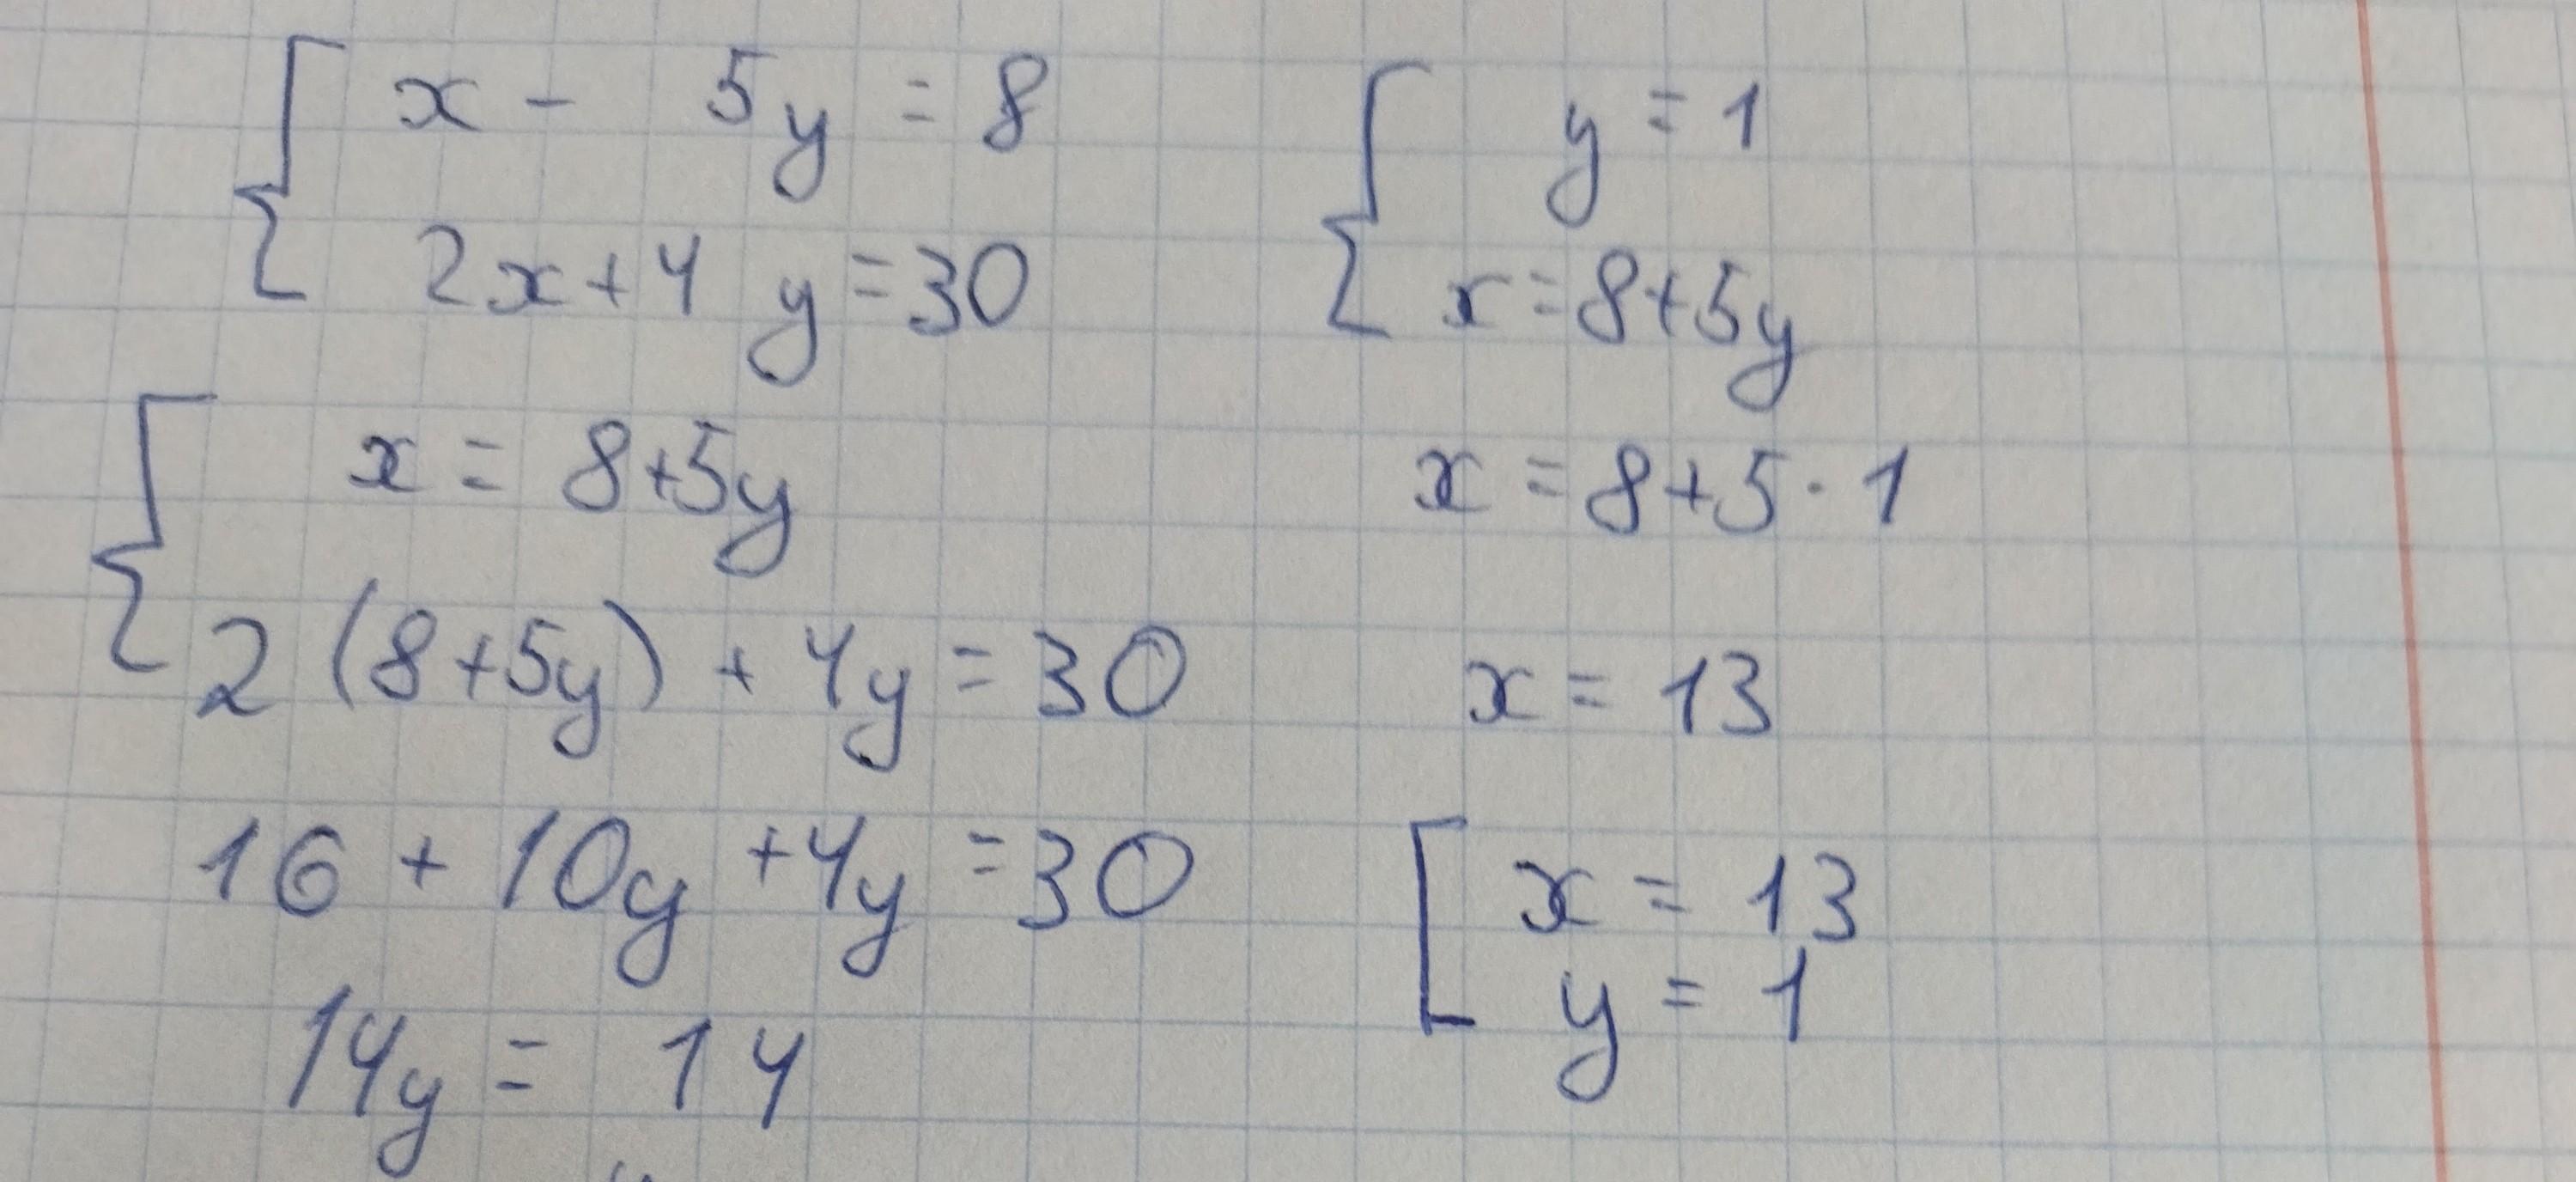 x - 5y = 8
2x + 4y = 30
x = 8+5y
2(8+5y) + 4y = 30
16 + 10y + 4y = 30
14y = 14
y = 1
x = 8+5y
x = 8+5·1
x = 13
x = 13
y = 1